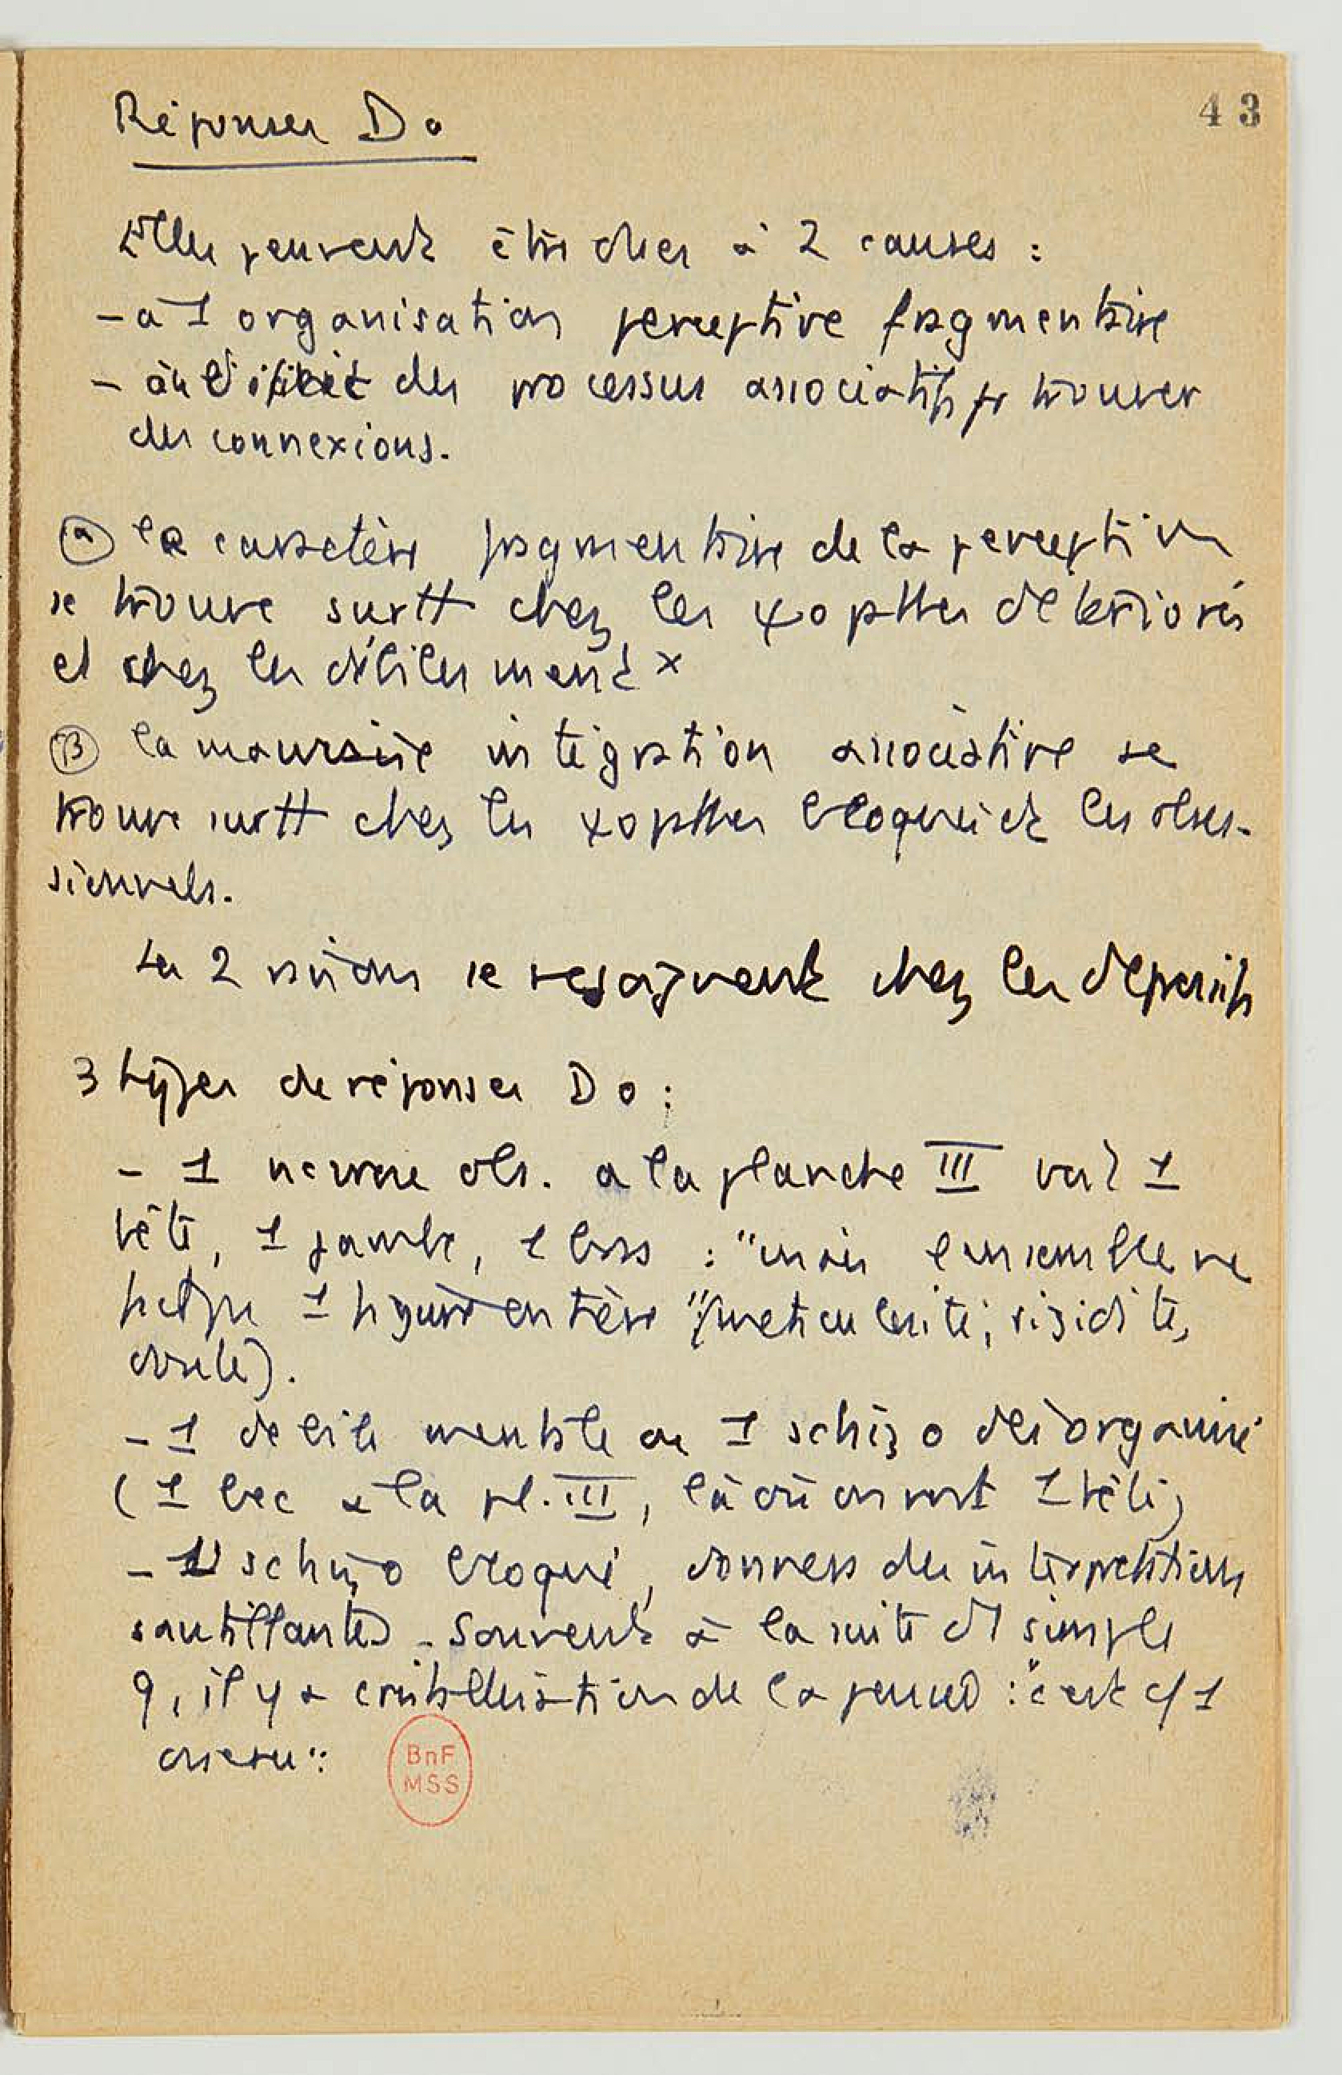 43
Réponses Do
Elles peuvent être dues à 2 causes :
- à 1 organisation perceptive fragmentaire
- à des processus associatifs pr trouver
des connexions.
(α) le caractère fragmentaire de la perception
se trouve surtt chez les détériorés
et chez les débiles ment x
(β) la mauvaise intégration associative se
trouve surtt chez les bloqués et les obses-
sionnels.
Les 2 raisons se rejoignent chez les dépressifs
3 types de réponses Do :
- 1 névrose obs. à la planche III voit 1
tête, 1 jambe, 1 bras : "mais l'ensemble ne
fait pas 1 figure entière" (méticulosité, rigidité,
doute).
- 1 débile mentale ou 1 schizo désorganisé
( 1 bec à la pl. III, là où on voit 1 tête)
- 1 schizo bloqué, donnera des interprétations
sautillantes - Souvent à la suite d'1 simple
q, il y a cristallisation de la pensée : "c'est c/ 1
oiseau".
BnF
MSS